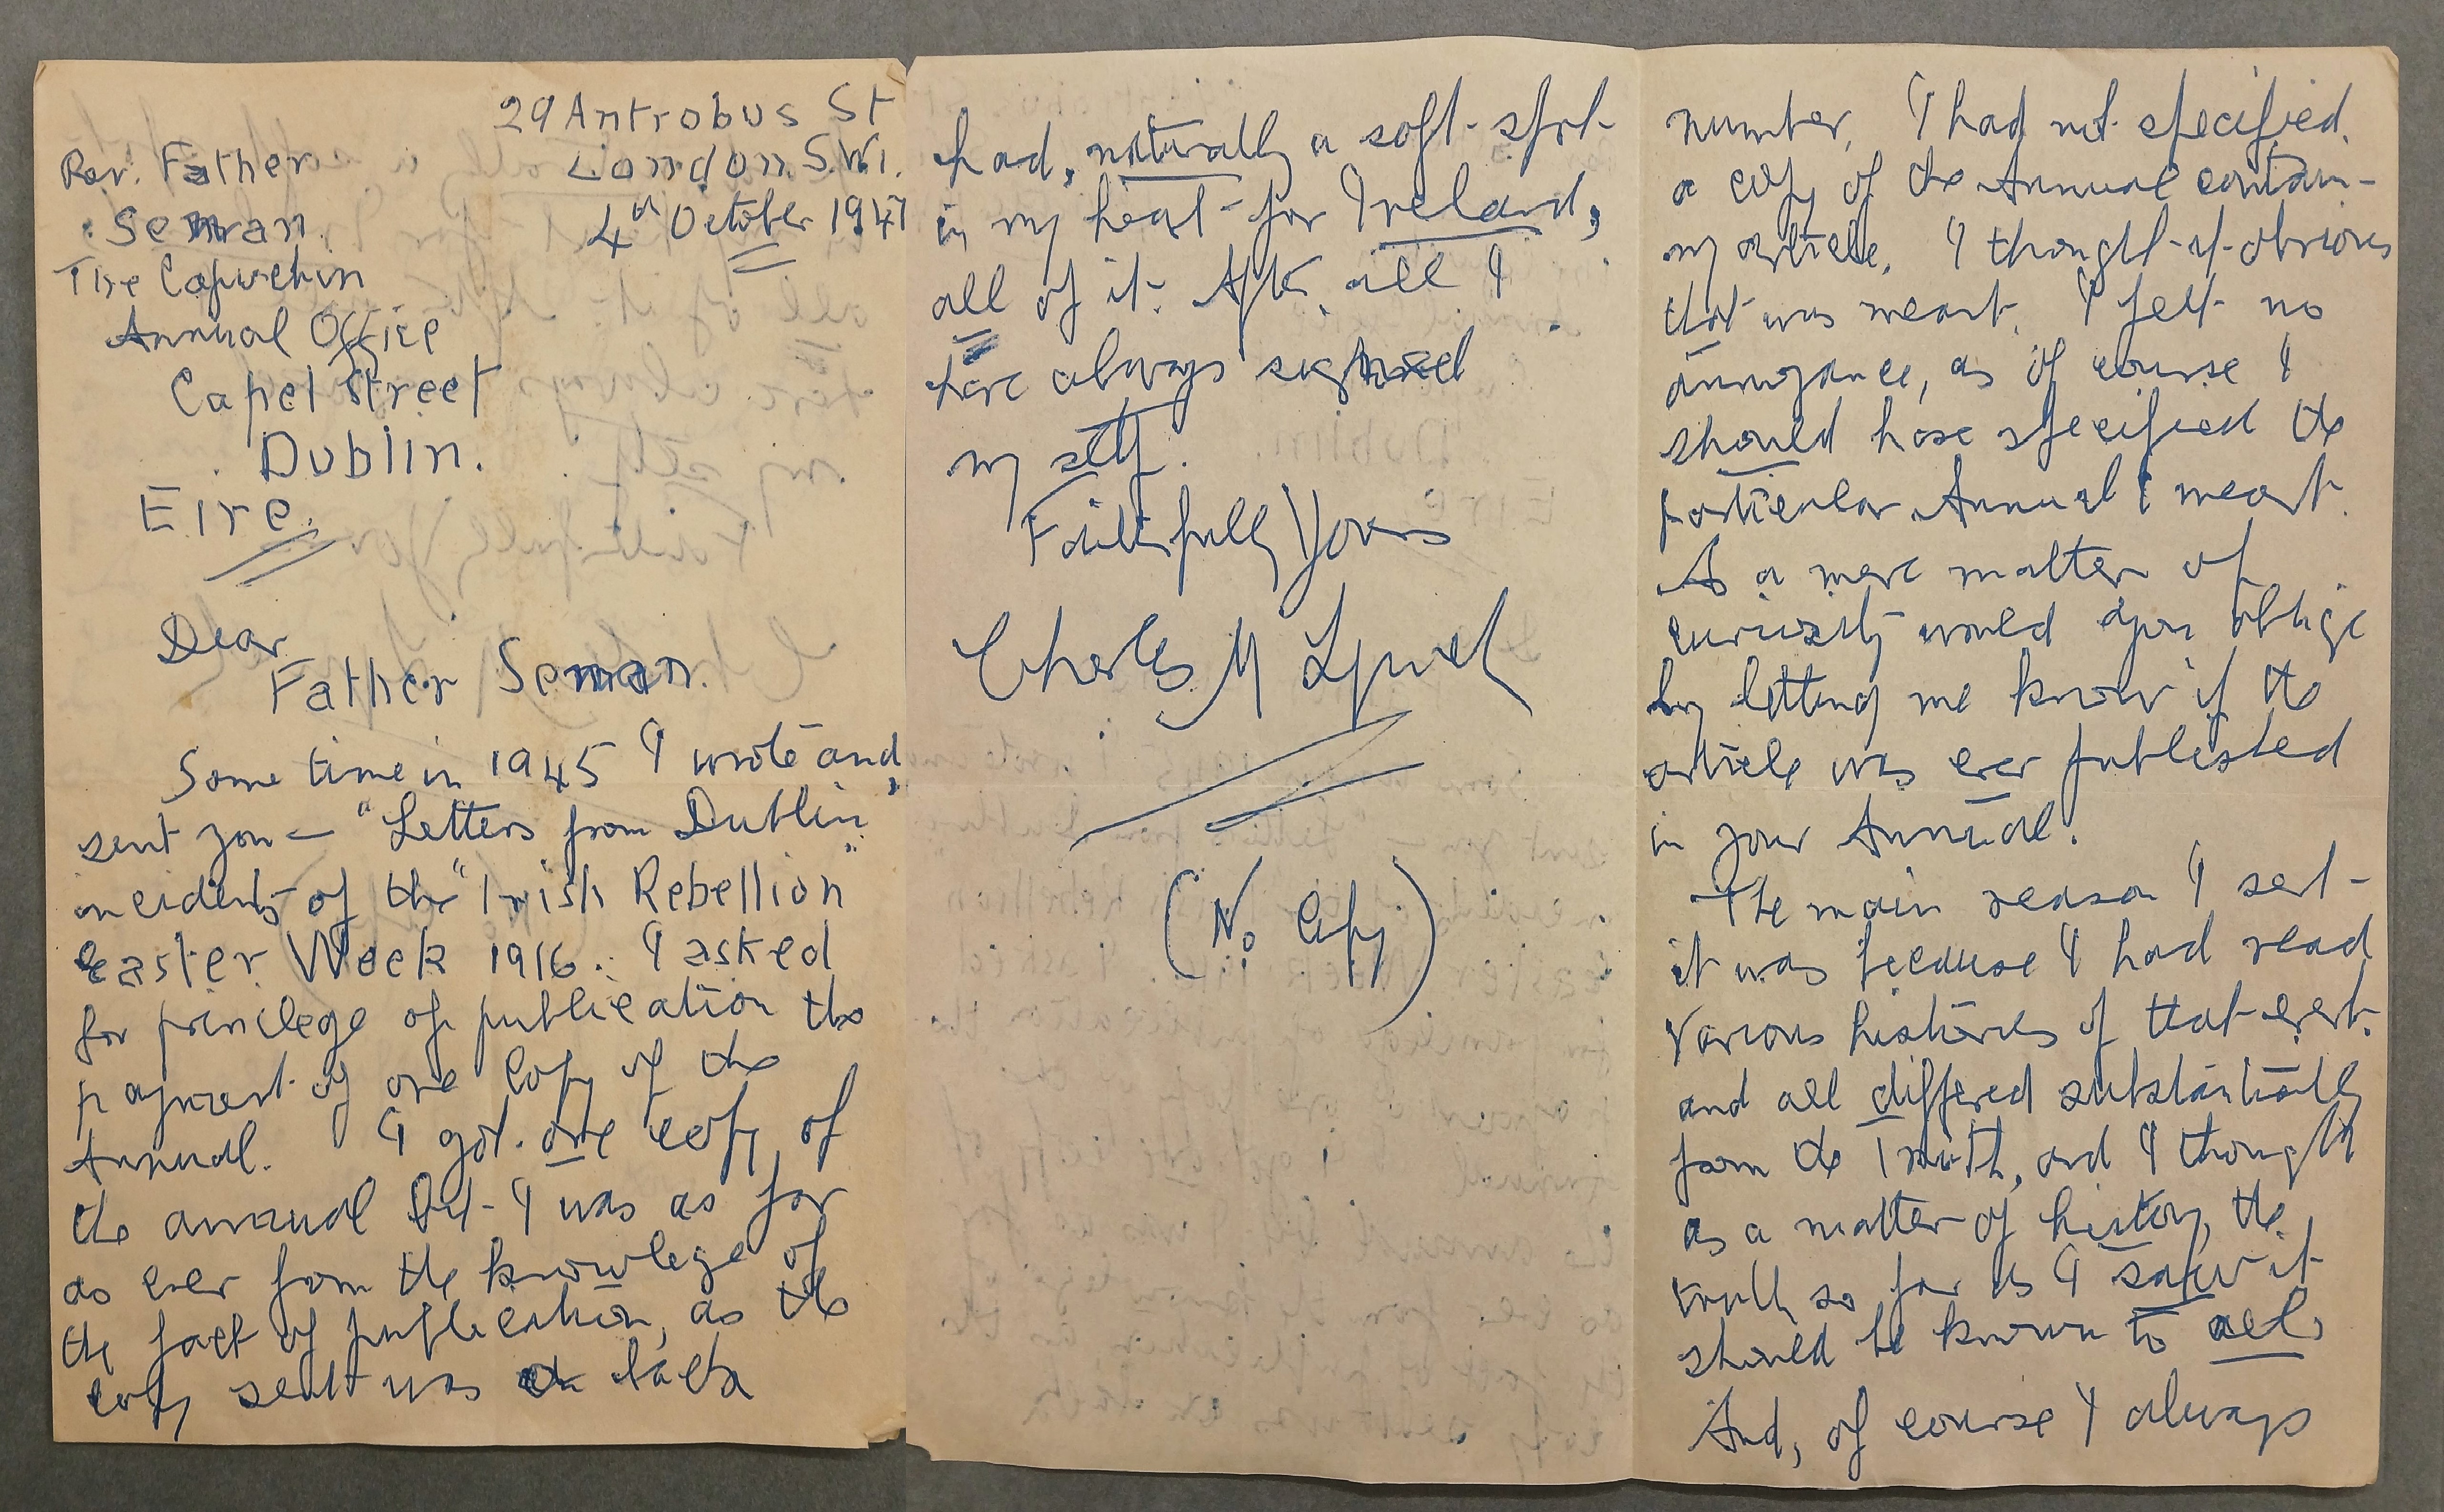 29 Antrobus St
London. S.W.1.
4th October 1947
Rev. Father
Senan.
The Capuchin
Annual Office
Capel Street
Dublin.
Eire.
Dear
Father Senan.
Some time in 1945 I wrote and
sent you – "Letters from Dublin",
incidents of the "Irish Rebellion"
Easter Week 1916. I asked
for privilege of publication the
payment of one copy of the
Annual. I got one copy of
the annual but I was as far
as ever from the knowlege of
the fact of publication, as the
copy sent was a back
number. I had not specified
a copy of the Annual contain-
my article. I thought it obvious
that was meant. I felt no
annoyance, as of course I
should have specified the
particular Annual I meant.
As a mere matter of
curiosity would you oblige
by letting me know if the
article was ever published
in your Annual.
The main reason I sent
it was because I had read
various histories of that event
and all differed substantially
from the Truth, and I thought
as a matter of history, the
truth so far as I saw it
should be known to all.
And, of course I always
had, naturally a soft spot
in my heart for Ireland,
all of it. After all I
have always signed
my
Faithfully Yours
Charles M Lynch
(No Copy)